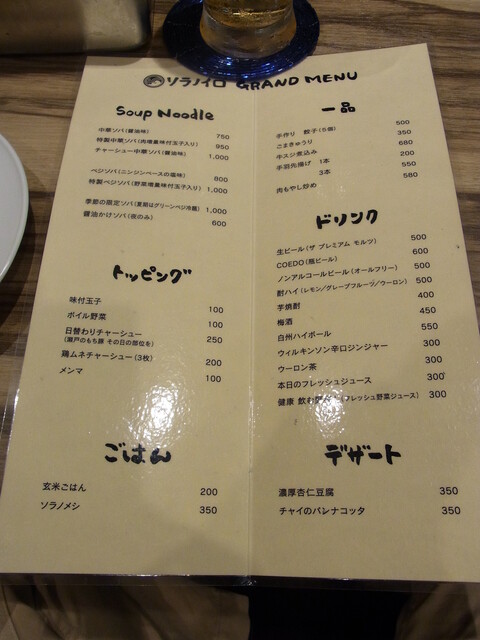 ソラノイロ GRAND MENU
Soup Noodle
中華ソバ(醤油味) 750
特製中華ソバ(肉増量味付玉子入り) 950
チャーシュー中華ソバ(醤油味) 1,000
ベジソバ(ニンジンベースの塩味) 800
特製ベジソバ(野菜増量味付玉子入り) 1,000
季節の限定ソバ(夏期はグリーンベジ冷麺) 1,000
醤油かけソバ(夜のみ) 600
トッピング
味付玉子 100
ボイル野菜 100
日替わりチャーシュー 250
(瀬戸のもち豚 その日の部位を)
鶏ムネチャーシュー(3枚) 200
メンマ 100
ごはん
玄米ごはん 200
ソラノメシ 350
一品
手作り 餃子(5個) 500
ごまきゅうり 350
牛スジ煮込み 680
手羽先揚げ 1本 200
3本 550
肉もやし炒め 580
ドリンク
生ビール(ザ プレミアム モルツ) 500
COEDO(瓶ビール) 600
ノンアルコールビール(オールフリー) 500
酎ハイ(レモン/グレープフルーツ/ウーロン) 500
芋焼酎 400
梅酒 450
白州ハイボール 550
ウィルキンソン辛口ジンジャー 300
ウーロン茶 300
本日のフレッシュジュース 300
健康 飲む (フレッシュ野菜ジュース) 300
デザート
濃厚杏仁豆腐 350
チャイのパンナコッタ 350